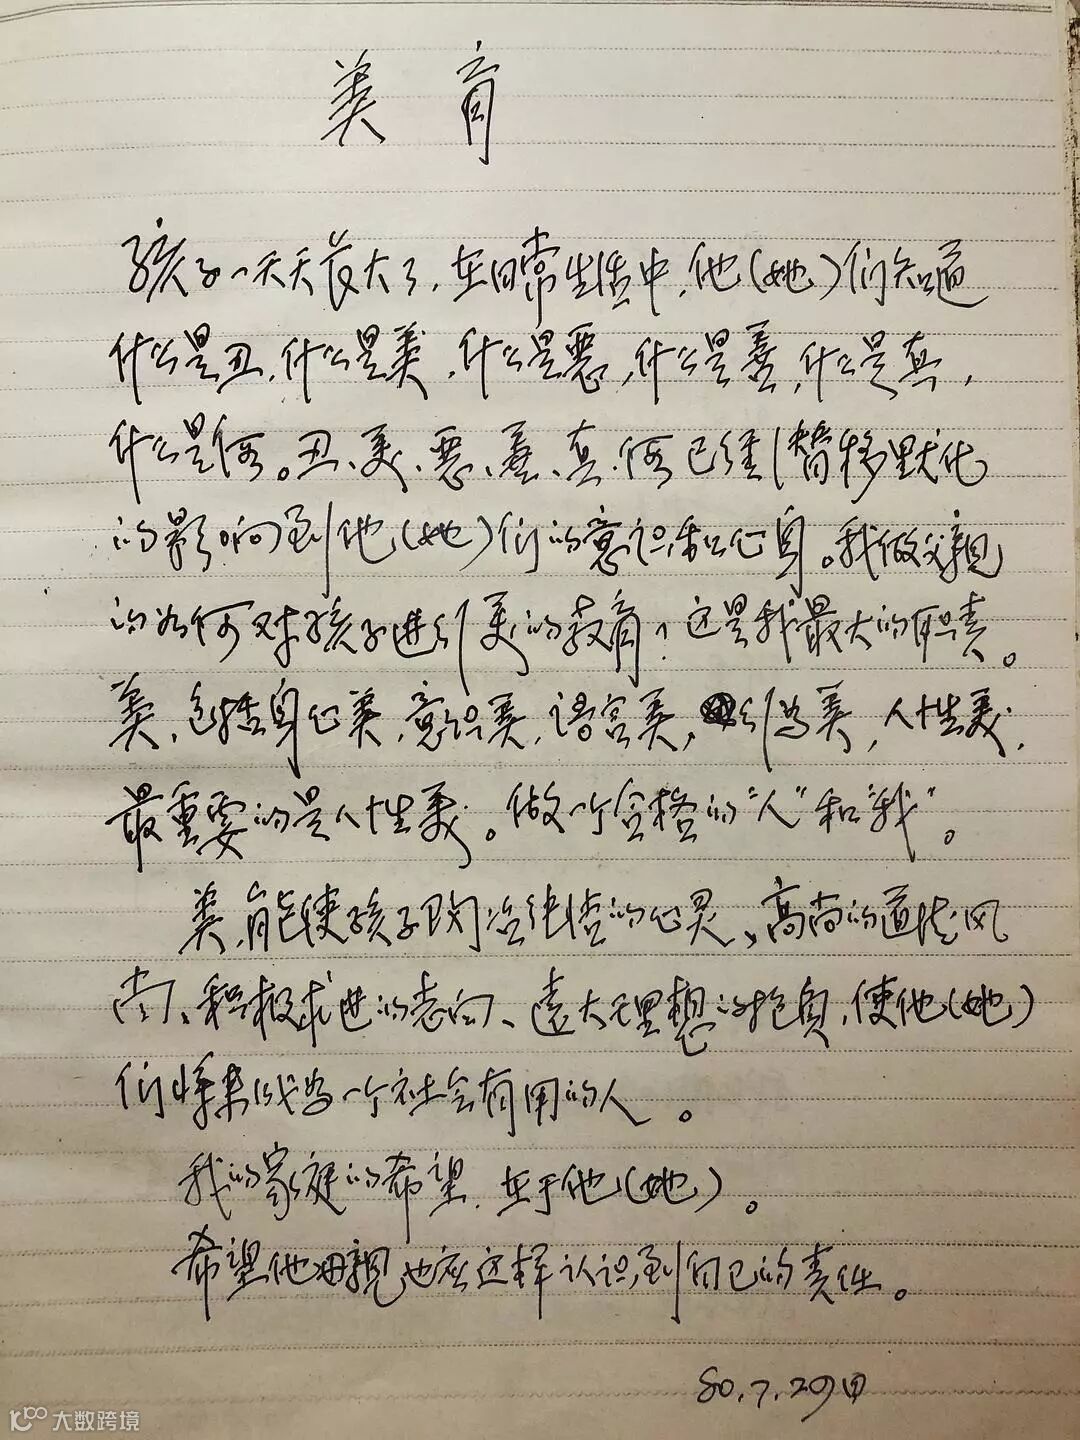 美育
孩子一天天长大了,在日常生活中,他(她)们知道
什么是丑,什么是美,什么是恶,什么是善,什么是真,
什么是假。丑、美、恶、善、真、假已经潜移默化
的影响到他(她)们的意识和心身。我做父親
的如何对孩子进行美的教育,这是我最大的职责。
美,包括身心美,意识美,语言美,行为美,人性美,
最重要的是人性美。做一个合格的"人"和"我"。
美,能使孩子陶冶纯洁的心灵、高尚的道德风
尚、积极求进的志向、远大理想的抱负,使他(她)
们将来成为一个社会有用的人。
我的家庭的希望,在于他(她)。
希望他母親也应这样认识到自己的责任。
80.7.29日
大数跨境